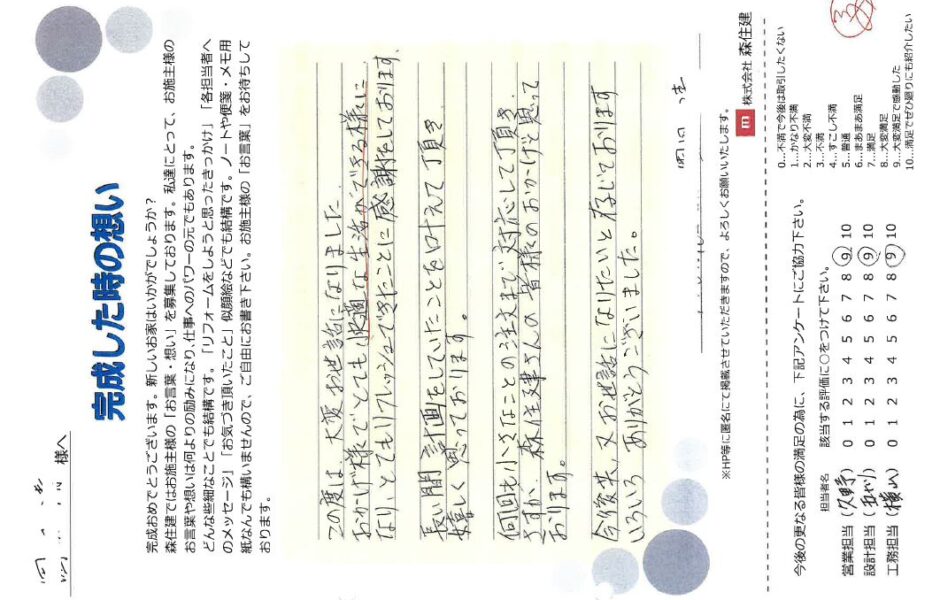 様へ
完成した時の想い
完成おめでとうございます。新しいお家はいかがでしょうか？
森住建ではお施主様の「お言葉・想い」を募集しております。私達にとって、お施主様の
お言葉や想いは何よりの励みになり、仕事へのパワーの元でもあります。
どんな些細なことでも結構です。「リフォームをしようと思ったきっかけ」「各担当者へ
のメッセージ」「お気づき頂いたこと」似顔絵などでも結構です。ノートや便箋・メモ用
紙なんでも構いませんので、ご自由にお書き下さい。お施主様の「お言葉」をお待ちして
おります。
この度は大変お世話になりました
おかげ様でとても快適な生活ができる様に
なり、とてもリフレッシュできたことに感謝をしております。
長い間計画をしていたことを叶えて頂き
嬉しく思っております。
何回も小さなことの注文まで対応して頂き
ますが、森住建さんの皆様のおかげと思って
おります。
今後共、又お世話になりたいと存じております
いろいろありがとうございました。
※HP等に匿名にて掲載させていただきますので、よろしくお願いいたします。
株式会社 森住建
今後の更なる皆様の満足の為に、下記アンケートにご協力下さい。
担当者名 該当する評価に○をつけて下さい。
営業担当（久野） 0 1 2 3 4 5 6 7 8 9 10
設計担当（） 0 1 2 3 4 5 6 7 8 9 10
工務担当（横山） 0 1 2 3 4 5 6 7 8 9 10
0…不満で今後は取引したくない
1…かなり不満
2…大変不満
3…不満
4…すこし不満
5…普通
6…まあまあ満足
7…満足
8…大変満足
9…大変満足で感動した
10…満足でぜひ周りにも紹介したい